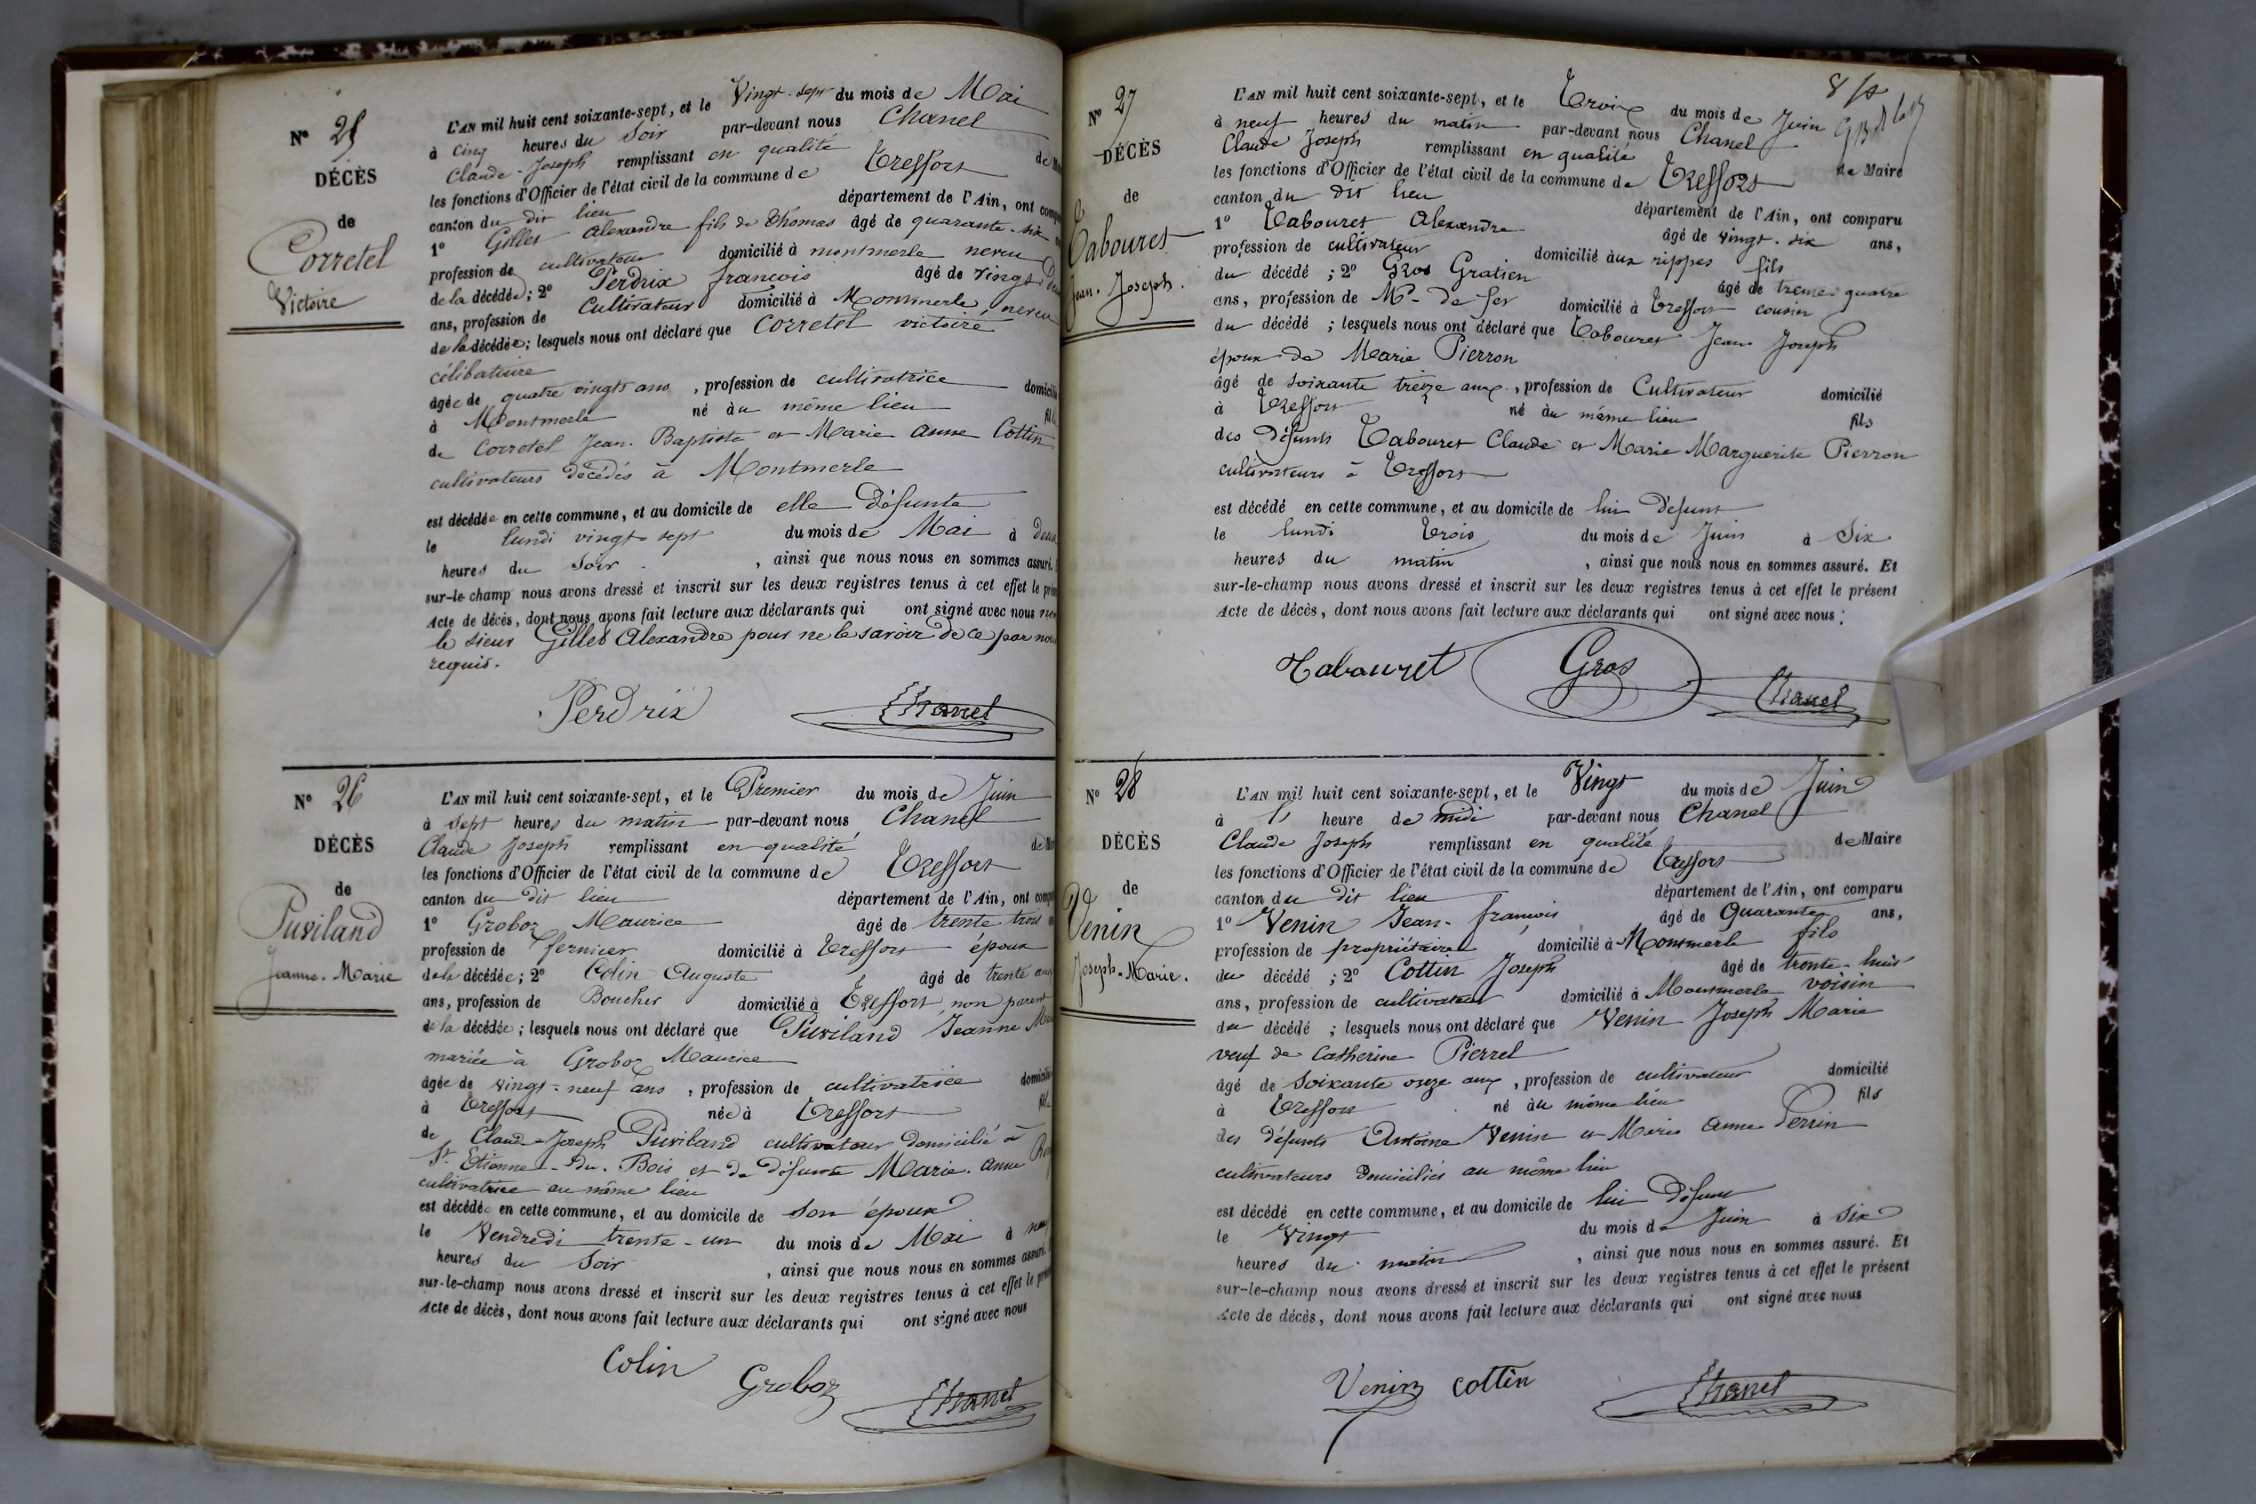 N° 25
DÉCÈS
de
Corretel
Victoire
L'AN mil huit cent soixante-sept, et le Vingt-sept du mois de Mai
à cinq heures du Soir par-devant nous Chanel
Claude-Joseph remplissant en qualité de
les fonctions d'Officier de l'état civil de la commune de Treffort
canton du dit lieu département de l'Ain, ont
1° Gillet Alexandre fils de Thomas âgé de quarante-six
profession de cultivateur domicilié à montmerle neveu
de la décédée; 2° Perdrix françois âgé de vingt
ans, profession de Cultivateur domicilié à Montmerle, neveu
de la décédée; lesquels nous ont déclaré que Corretel victoire
célibataire
âgée de quatre vingts ans, profession de cultivatrice
à Montmerle né au même lieu
de Corretel Jean-Baptiste et Marie Anne Cottin
cultivateurs décédés à Montmerle
est décédée en cette commune, et au domicile de elle Défunte
le lundi vingt-sept du mois de Mai à
heures du Soir, ainsi que nous nous en sommes assuré.
sur-le-champ nous avons dressé et inscrit sur les deux registres tenus à cet effet le
Acte de décès, dont nous avons fait lecture aux déclarants qui ont signé avec nous
le sieur Gillet Alexandre pour ne le savoir de ce par nous
requis.
Perdrix Chanel
N° 26
DÉCÈS
de
Puviland
Jeanne-Marie
L'AN mil huit cent soixante-sept, et le Premier du mois de Juin
à sept heures du matin par-devant nous Chanel
Claude Joseph remplissant en qualité de
les fonctions d'Officier de l'état civil de la commune de Treffort
canton du dit lieu département de l'Ain, ont
1° Groboz Maurice âgé de trente trois
profession de fermier domicilié à Treffort époux
de la décédée; 2° Colin Auguste âgé de trente
ans, profession de Boucher domicilié à Treffort, non parent
de la décédée; lesquels nous ont déclaré que Puviland Jeanne
mariée à Groboz Maurice
âgée de vingt-neuf ans, profession de cultivatrice
à Treffort née à Treffort
de Claude-Joseph Puviland cultivateur domicilié à
St. Etienne-du-Bois et de défunte Marie-Anne
cultivatrice au même lieu
est décédée en cette commune, et au domicile de son époux
le Vendredi trente-un du mois de Mai à
heures du Soir, ainsi que nous nous en sommes assuré.
sur-le-champ nous avons dressé et inscrit sur les deux registres tenus à cet effet le
Acte de décès, dont nous avons fait lecture aux déclarants qui ont signé avec nous
Colin Groboz Chanel
N° 27
DÉCÈS
de
Tabouret
Jean-Joseph.
L'AN mil huit cent soixante-sept, et le Trois du mois de Juin
à neuf heures du matin par-devant nous Chanel
Claude Joseph remplissant en qualité de Maire
les fonctions d'Officier de l'état civil de la commune de Treffort
canton du dit lieu département de l'Ain, ont comparu
1° Tabouret Alexandre âgé de vingt-six ans,
profession de cultivateur domicilié aux rippes fils
du décédé; 2° Gros Gratien âgé de trente-quatre
ans, profession de Md de fer domicilié à Treffort cousin
du décédé; lesquels nous ont déclaré que Tabouret Jean Joseph
époux de Marie Pierron
âgé de soixante treize ans, profession de Cultivateur domicilié
à Treffort né au même lieu fils
des défunts Tabouret Claude et Marie Marguerite Pierron
cultivateurs à Treffort
est décédé en cette commune, et au domicile de lui Défunt
le lundi trois du mois de Juin à Six
heures du matin, ainsi que nous nous en sommes assuré. Et
sur-le-champ nous avons dressé et inscrit sur les deux registres tenus à cet effet le présent
Acte de décès, dont nous avons fait lecture aux déclarants qui ont signé avec nous:
Tabouret Gros Chanel
N° 28
DÉCÈS
de
Venin
Joseph-Marie.
L'AN mil huit cent soixante-sept, et le Vingt du mois de Juin
à heure de midi par-devant nous Chanel
Claude Joseph remplissant en qualité de Maire
les fonctions d'Officier de l'état civil de la commune de Treffort
canton du dit lieu département de l'Ain, ont comparu
1° Venin Jean-françois âgé de Quarante ans,
profession de propriétaire, domicilié à Montmerle fils
du décédé; 2° Cottin Joseph âgé de trente-huit
ans, profession de cultivateur domicilié à Montmerle voisin
du décédé; lesquels nous ont déclaré que Venin Joseph Marie
veuf de Catherine Pierrel
âgé de soixante onze ans, profession de cultivateur domicilié
à Treffort né au même lieu fils
des défunts Antoine Venin et Marie Anne Perrin
cultivateurs domiciliés au même lieu
est décédé en cette commune, et au domicile de lui Défunt
le Vingt du mois de Juin à Six
heures du matin, ainsi que nous nous en sommes assuré. Et
sur-le-champ nous avons dressé et inscrit sur les deux registres tenus à cet effet le présent
Acte de décès, dont nous avons fait lecture aux déclarants qui ont signé avec nous
Venin Cottin Chanel